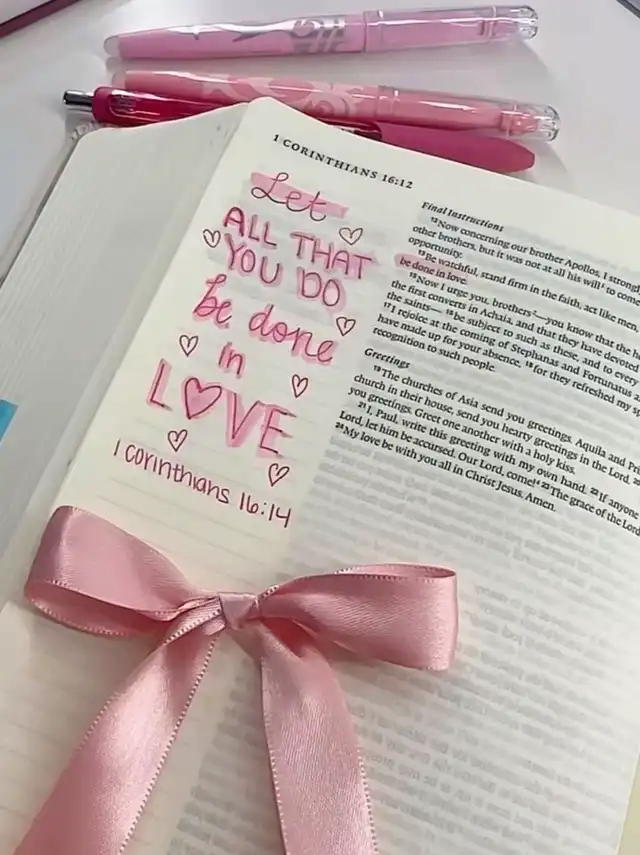 1 CORINTHIANS 16:12
Let
ALL THAT
YOU DO
be done
in
LOVE
1 corinthians 16:14
Final Instructions
12Now concerning our brother Apollos, I strongl
other brothers, but it was not at all his will1 to com
opportunity.
13Be watchful, stand firm in the faith, act like men,
be done in love.
15Now I urge you, brothers2—you know that the h
the first converts in Achaia, and that they have devoted
the saints— 16be subject to such as these, and to every
17I rejoice at the coming of Stephanas and Fortunatus a
have made up for your absence, 18for they refreshed my
recognition to such people.
Greetings
19The churches of Asia send you greetings. Aquila and Pri
church in their house, send you hearty greetings in the Lord. 20
you greetings. Greet one another with a holy kiss.
21I, Paul, write this greeting with my own hand. 22If anyone
Lord, let him be accursed. Our Lord, come!4 23The grace of the Lord
24My love be with you all in Christ Jesus. Amen.